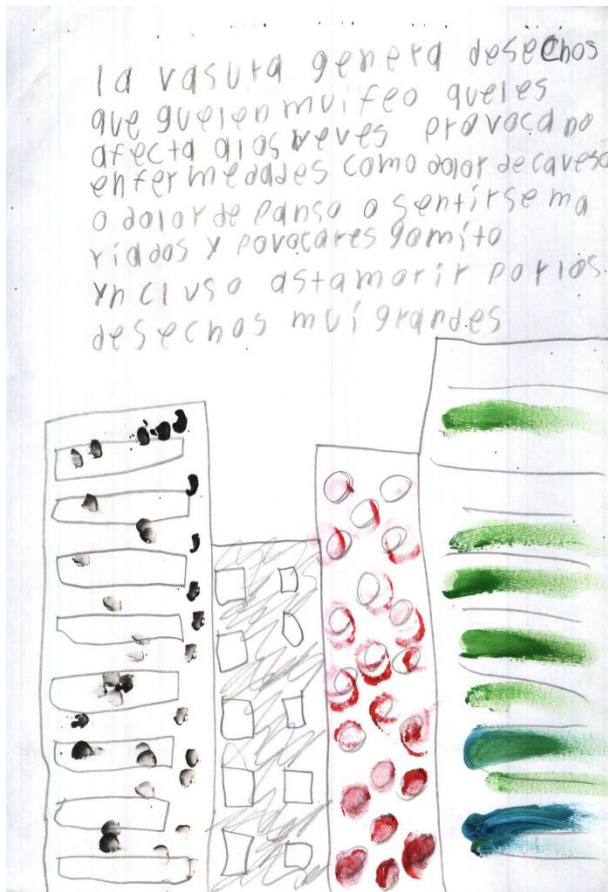 la vasura genera desechos
que guelen mui feo queles
afecta alos veves provocando
enfermedades como dolor de caveso
o dolor de panso o sentirse ma
riados y povocares gomito
yncluso asta morir por los
desechos mui grandes